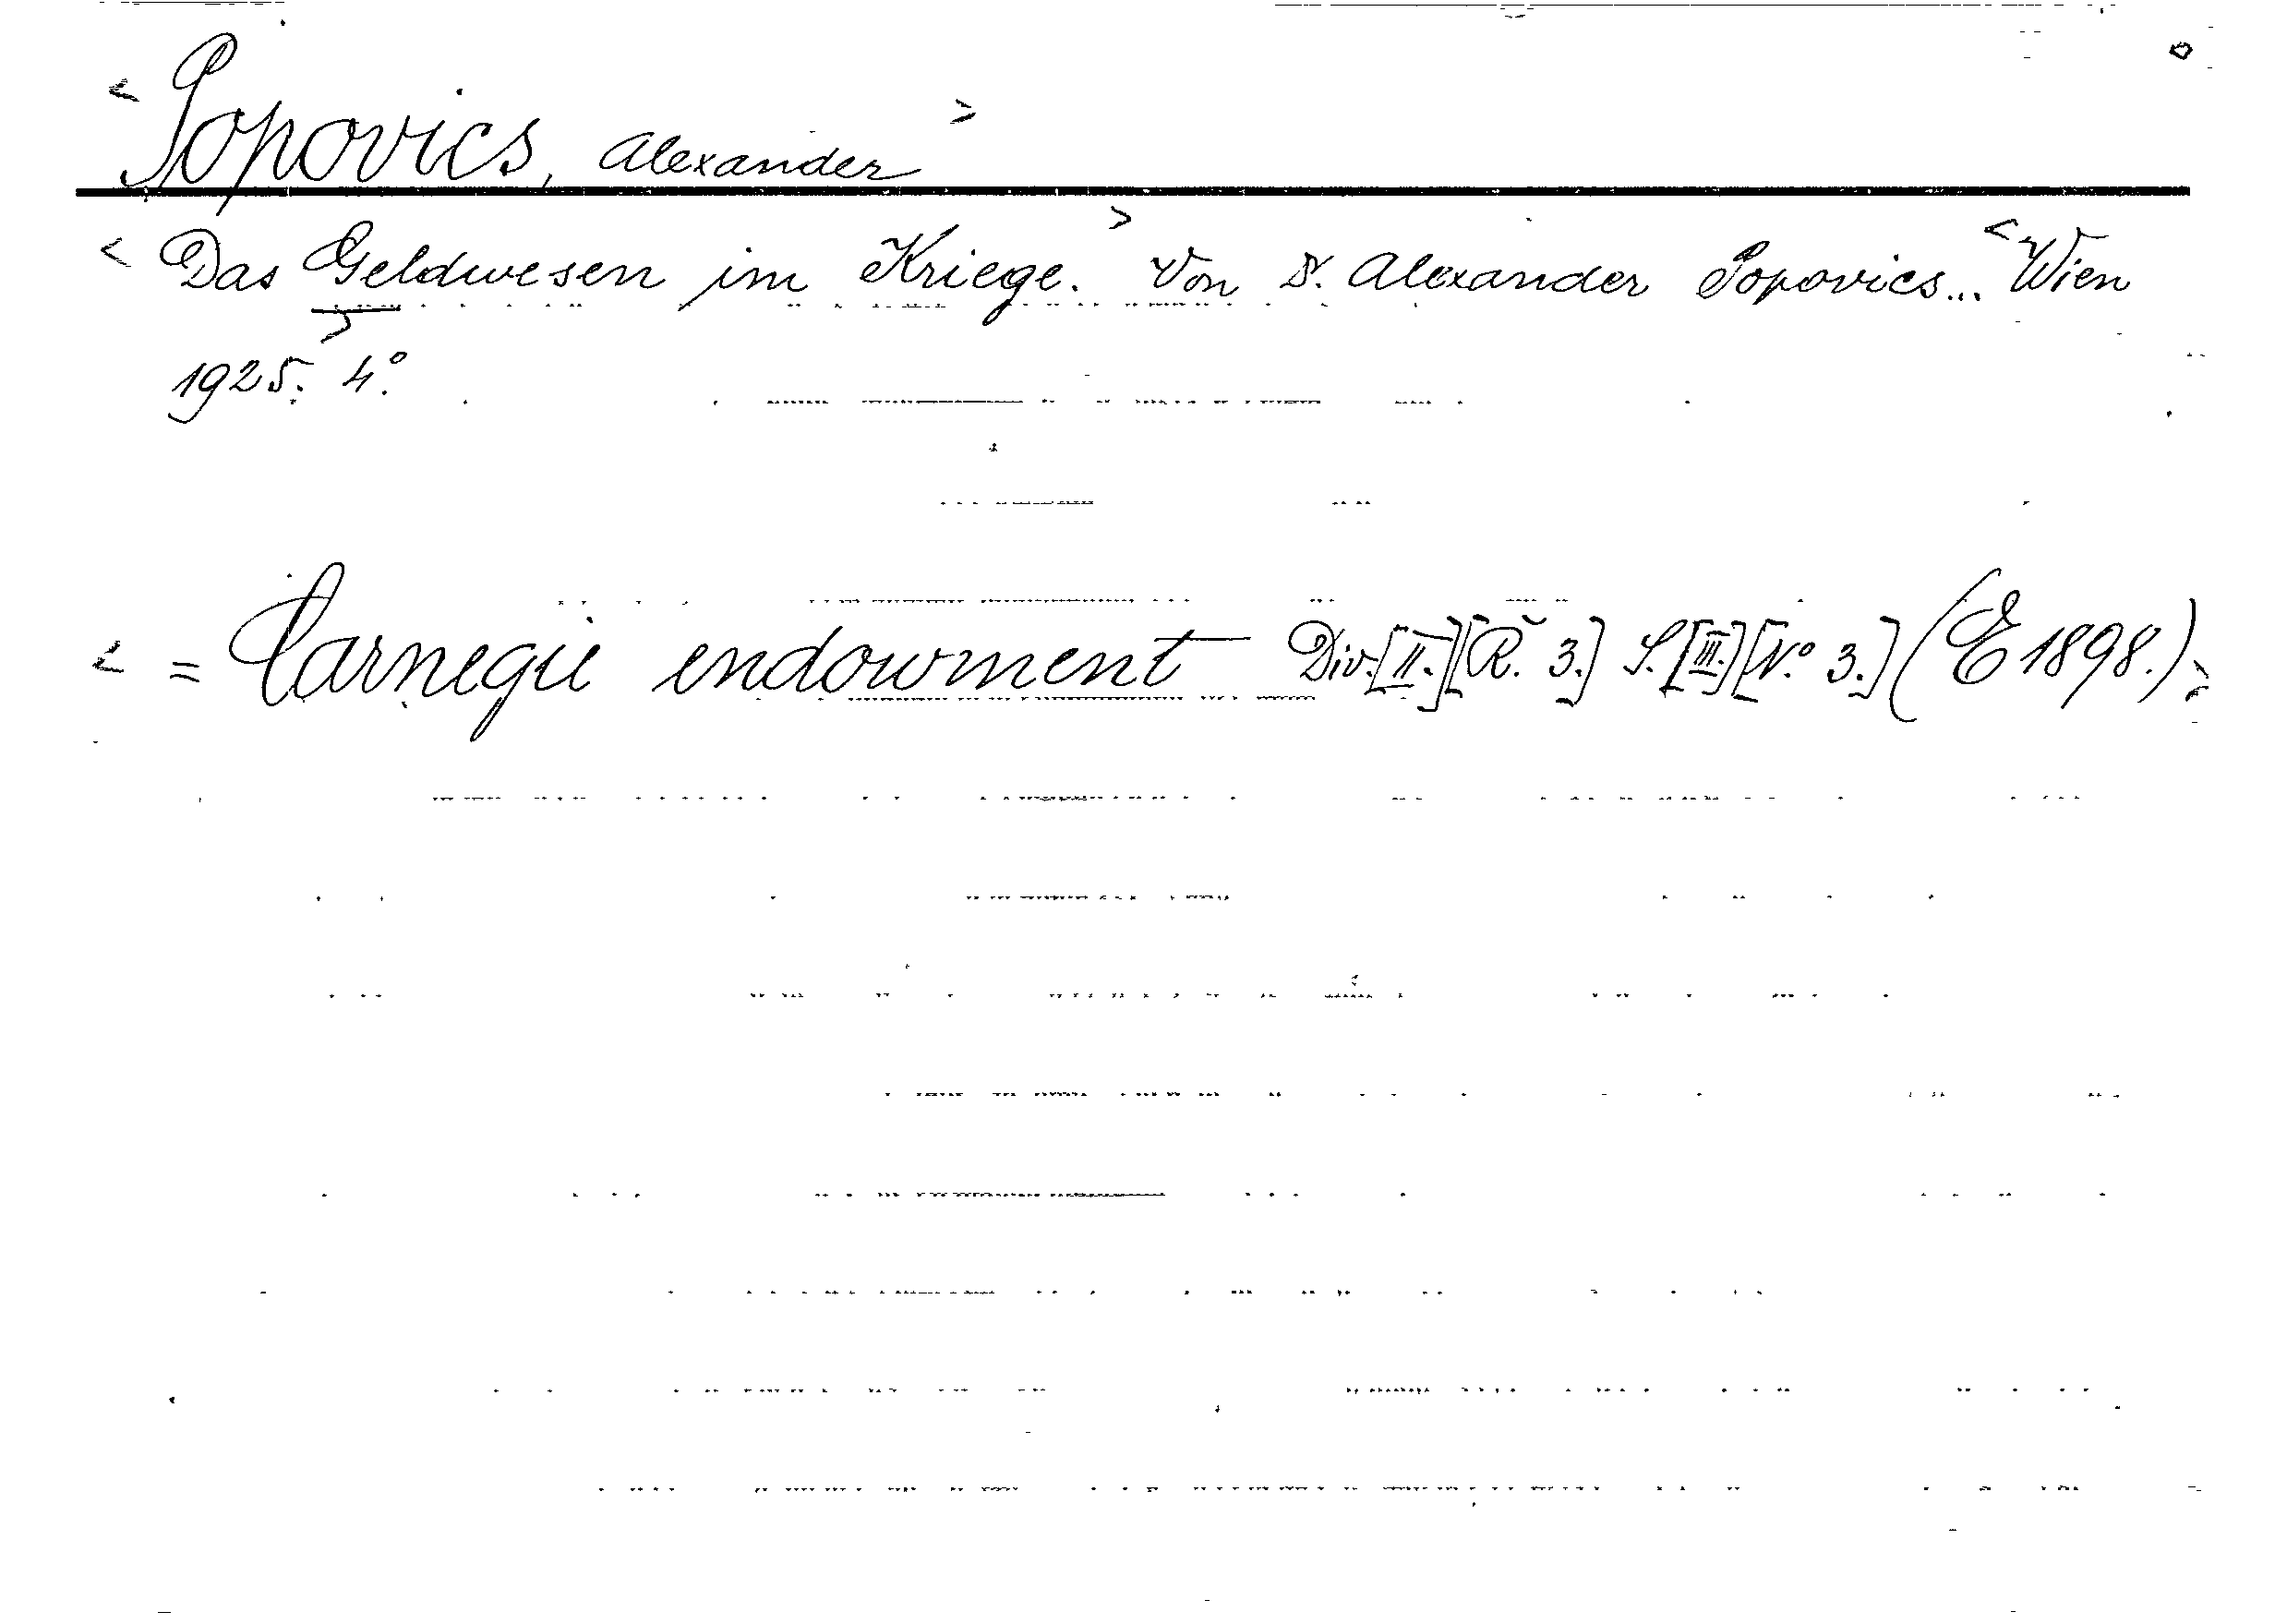 < Popovics, Alexander >
< Das Geldwesen im Kriege. > Von Dr. Alexander Popovics... < Wien
1925. > 4°.
< = Carnegie endowment Div. [II.] [R. 3.] S. [III.] [No 3.] (E 1898.) >